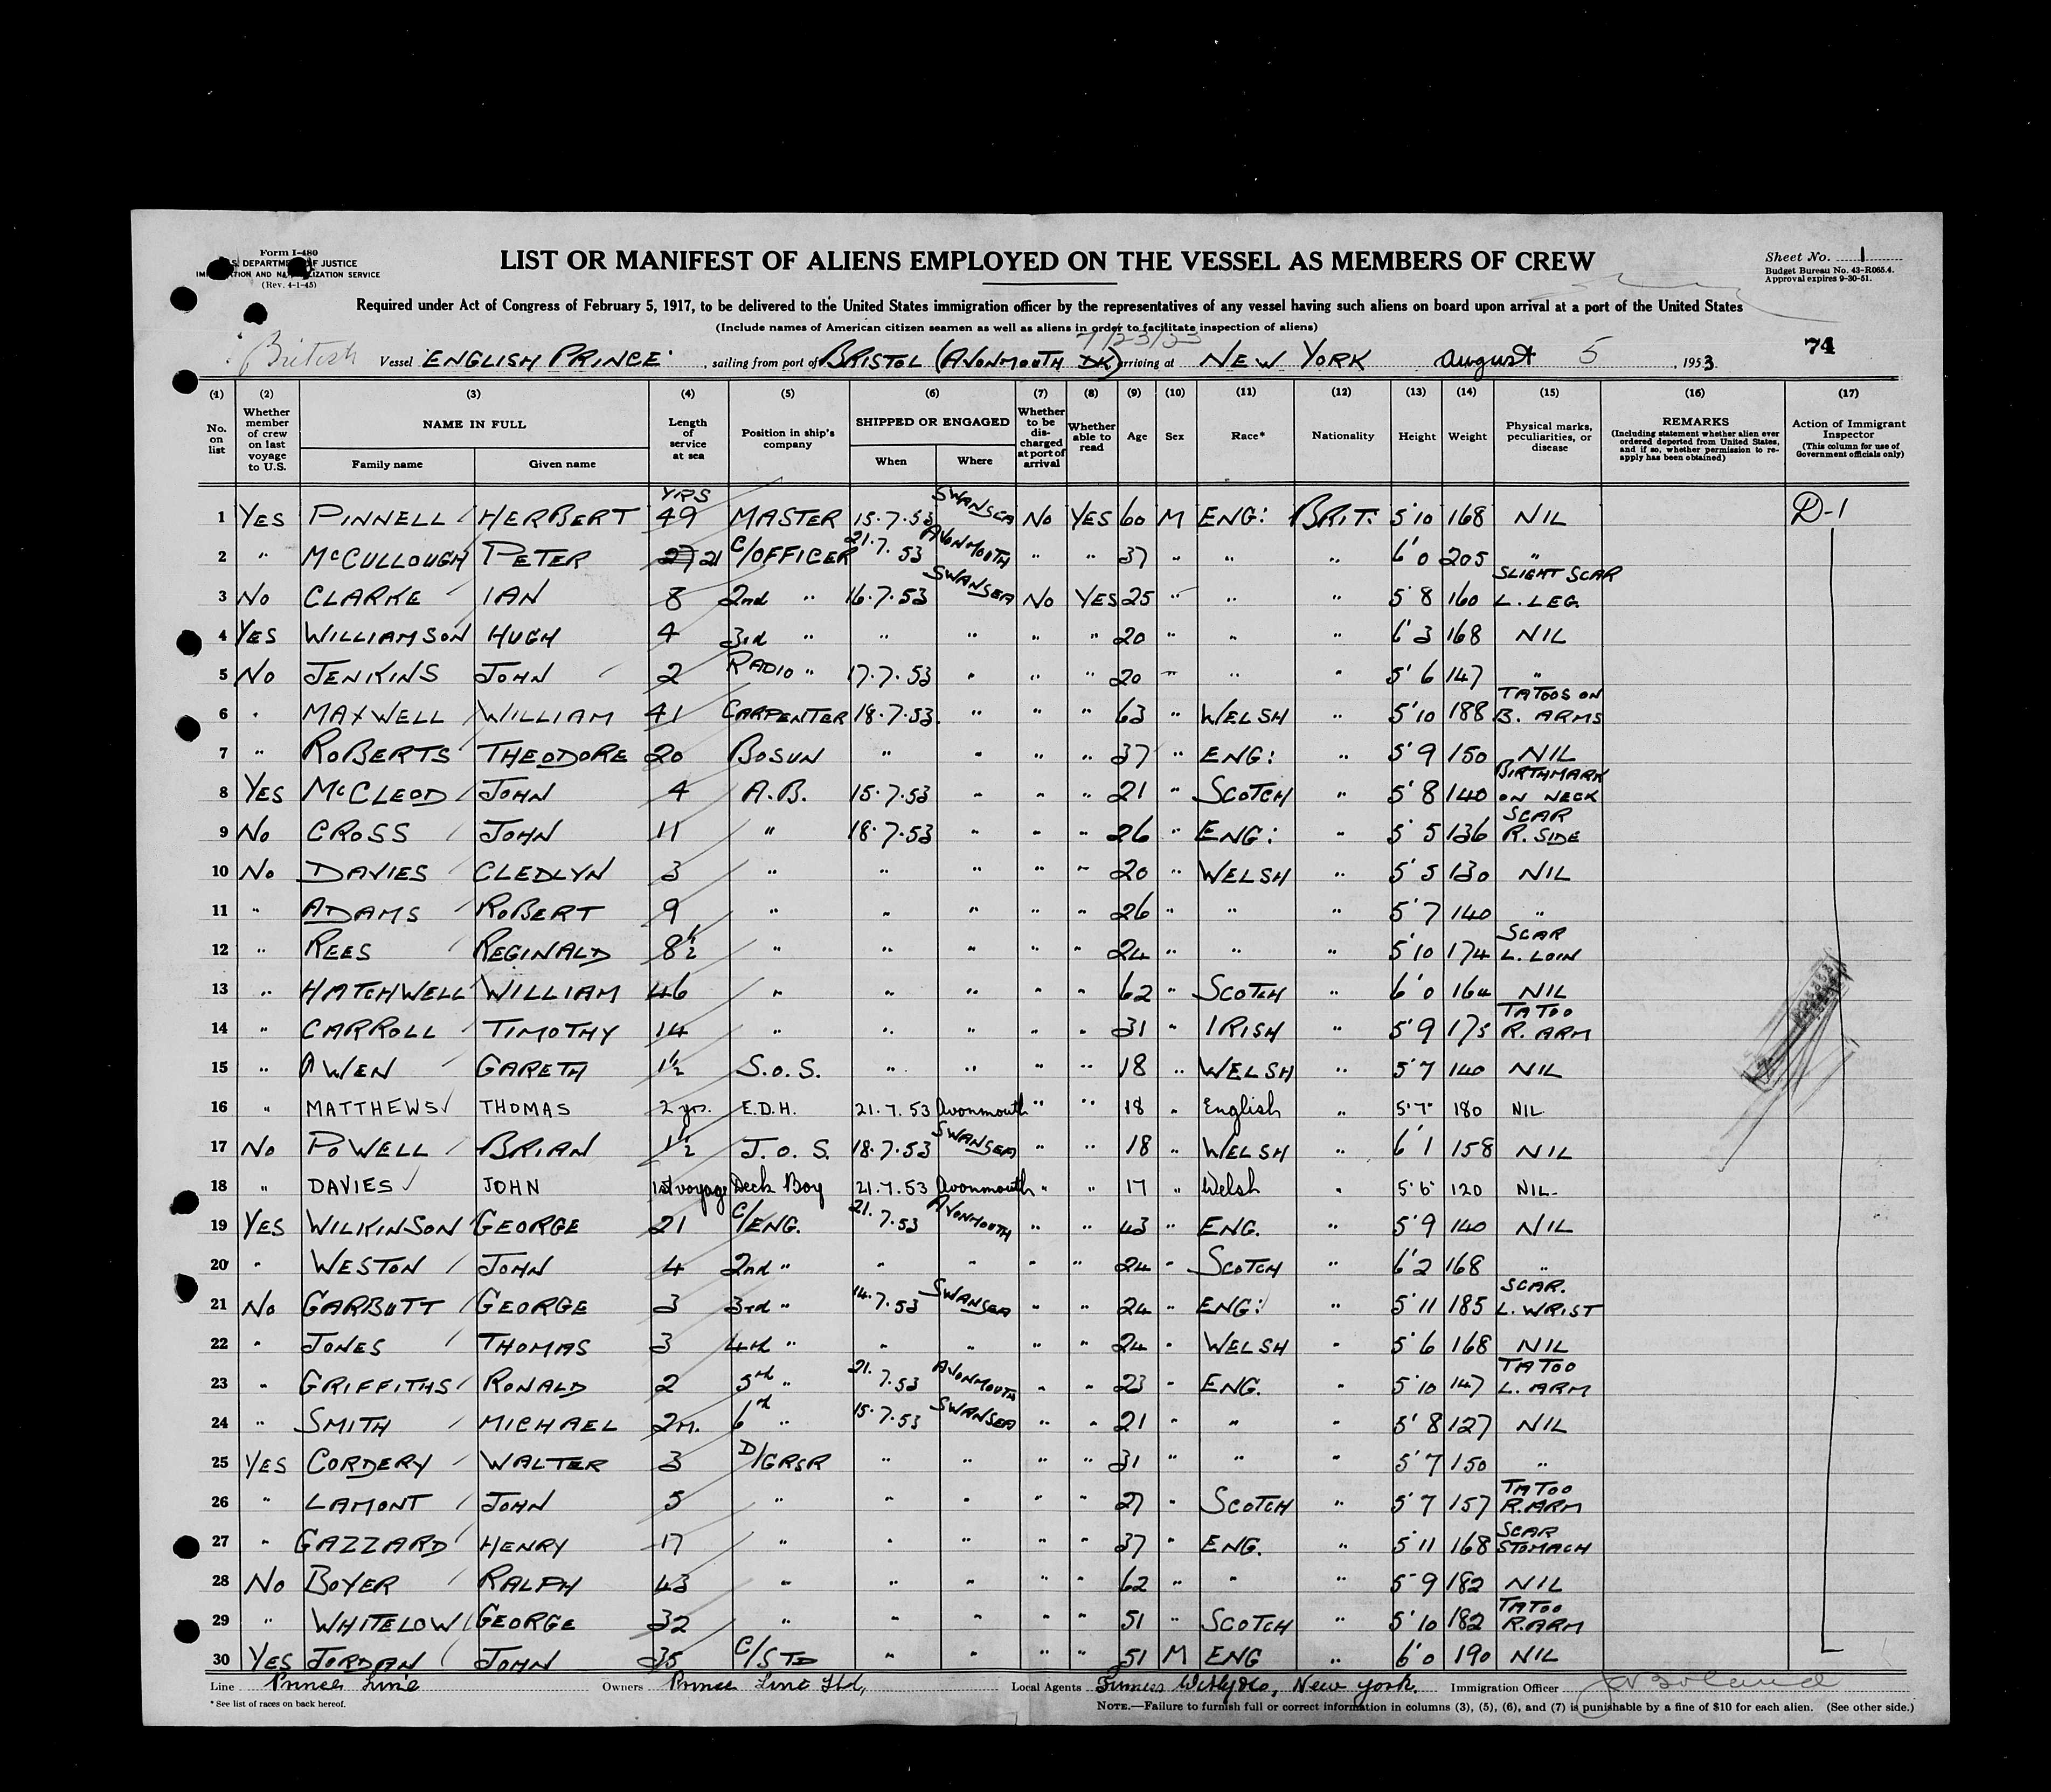 Form I-480
U.S. DEPARTMENT OF JUSTICE
IMMIGRATION AND NATURALIZATION SERVICE
(Rev. 4-1-45)
LIST OR MANIFEST OF ALIENS EMPLOYED ON THE VESSEL AS MEMBERS OF CREW
Sheet No. 1
Budget Bureau No. 43-R065.4.
Approval expires 9-30-51.
Required under Act of Congress of February 5, 1917, to be delivered to the United States immigration officer by the representatives of any vessel having such aliens on board upon arrival at a port of the United States
(Include names of American citizen seamen as well as aliens in order to facilitate inspection of aliens)
7/23/53
74
British Vessel "ENGLISH PRINCE", sailing from port of BRISTOL (AVONMOUTH DK) arriving at NEW YORK August 5, 1953.
(1) (2) (3) (4) (5) (6) (7) (8) (9) (10) (11) (12) (13) (14) (15) (16) (17)
No. on list
Whether member of crew on last voyage to U.S.
NAME IN FULL
Family name
Given name
Length of service at sea
Position in ship's company
SHIPPED OR ENGAGED
When
Where
Whether to be discharged at port of arrival
Whether able to read
Age
Sex
Race*
Nationality
Height
Weight
Physical marks, peculiarities, or disease
REMARKS
(Including statement whether alien ever ordered deported from United States, and if so, whether permission to reapply has been obtained)
Action of Immigrant Inspector
(This column for use of Government officials only)
YRS
1 YES PINNELL HERBERT 49 MASTER 15.7.53 SWANSEA NO YES 60 M ENG: BRIT: 5'10 168 NIL D-1
2 " McCULLOUGH PETER 27 21 C/OFFICER 21.7.53 AVONMOUTH " " 37 " " " 6'0 205 "
3 NO CLARKE IAN 8 2nd " 16.7.53 SWANSEA NO YES 25 " " " 5'8 160 SLIGHT SCAR L. LEG.
4 YES WILLIAMSON HUGH 4 3rd " " " " " 20 " " " 6'3 168 NIL
5 NO JENKINS JOHN 2 RADIO " 17.7.53 " " " 20 " " " 5'6 147 "
6 " MAXWELL WILLIAM 41 CARPENTER 18.7.53. " " " 63 " WELSH " 5'10 188 TATOOS ON B. ARMS
7 " ROBERTS THEODORE 20 BOSUN " " " " 37 " ENG: " 5'9 150 NIL
8 YES McCLEOD JOHN 4 A.B. 15.7.53 " " " 21 " SCOTCH " 5'8 140 BIRTHMARK ON NECK
9 NO CROSS JOHN 11 " 18.7.53 " " " 26 " ENG: " 5'5 136 SCAR R. SIDE
10 NO DAVIES CLEDLYN 3 " " " " " 20 " WELSH " 5'5 130 NIL
11 " ADAMS ROBERT 9 " " " " " 26 " " " 5'7 140 "
12 " REES REGINALD 8½ " " " " " 24 " " " 5'10 174 SCAR L. LOIN
13 " HATCHWELL WILLIAM 46 " " " " " 62 " SCOTCH " 6'0 164 NIL
14 " CARROLL TIMOTHY 14 " " " " " 31 " IRISH " 5'9 175 TATOO R. ARM
15 " OWEN GARETH 1½ S.O.S. " " " " 18 " WELSH " 5'7 140 NIL
16 " MATTHEWS THOMAS 2 yrs. E.D.H. 21.7.53 Avonmouth " " 18 " English " 5'7" 180 NIL
17 NO POWELL BRIAN 1½ J.O.S. 18.7.53 SWANSEA " " 18 " WELSH " 6'1 158 NIL
18 " DAVIES JOHN 1st voyage Deck Boy 21.7.53 Avonmouth " " 17 " Welsh " 5'6" 120 NIL.
19 YES WILKINSON GEORGE 21 C/ENG. 21.7.53 AVONMOUTH " " 43 " ENG. " 5'9 140 NIL
20 " WESTON JOHN 4 2nd " " " " " 24 " SCOTCH " 6'2 168 "
21 NO GARBUTT GEORGE 3 3rd " 14.7.53 SWANSEA " " 24 " ENG: " 5'11 185 SCAR. L. WRIST
22 " JONES THOMAS 3 4th " " " " " 24 " WELSH " 5'6 168 NIL
23 " GRIFFITHS RONALD 2 5th " 21.7.53 AVONMOUTH " " 23 " ENG. " 5'10 147 TATOO L. ARM
24 " SMITH MICHAEL 2M. 6th " 15.7.53 SWANSEA " " 21 " " " 5'8 127 NIL
25 YES CORDERY WALTER 3 D/GRSR " " " " 31 " " " 5'7 150 "
26 " LAMONT JOHN 5 " " " " " 27 " SCOTCH " 5'7 157 TATOO R. ARM
27 " GAZZARD HENRY 17 " " " " " 37 " ENG. " 5'11 168 SCAR STOMACH
28 NO BOYER RALPH 43 " " " " " 62 " " " 5'9 182 NIL
29 " WHITELOW GEORGE 32 " " " " " 51 " SCOTCH " 5'10 182 TATOO R. ARM
30 YES JORDAN JOHN 35 C/STD " " " " 51 M ENG " 6'0 190 NIL
Line Prince Line Owners Prince Line Ltd, Local Agents Furness Withy & Co, New York. Immigration Officer
* See list of races on back hereof.
NOTE.—Failure to furnish full or correct information in columns (3), (5), (6), and (7) is punishable by a fine of $10 for each alien. (See other side.)